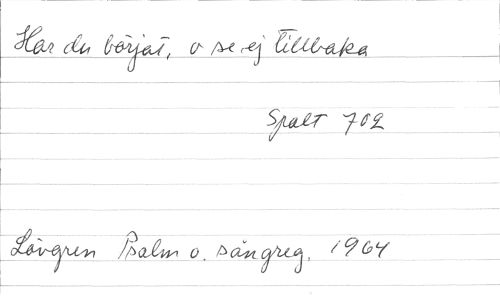 Har du börjat, o se ej tillbaka
Spalt 702
Lövgren Psalm o. sångreg. 1964